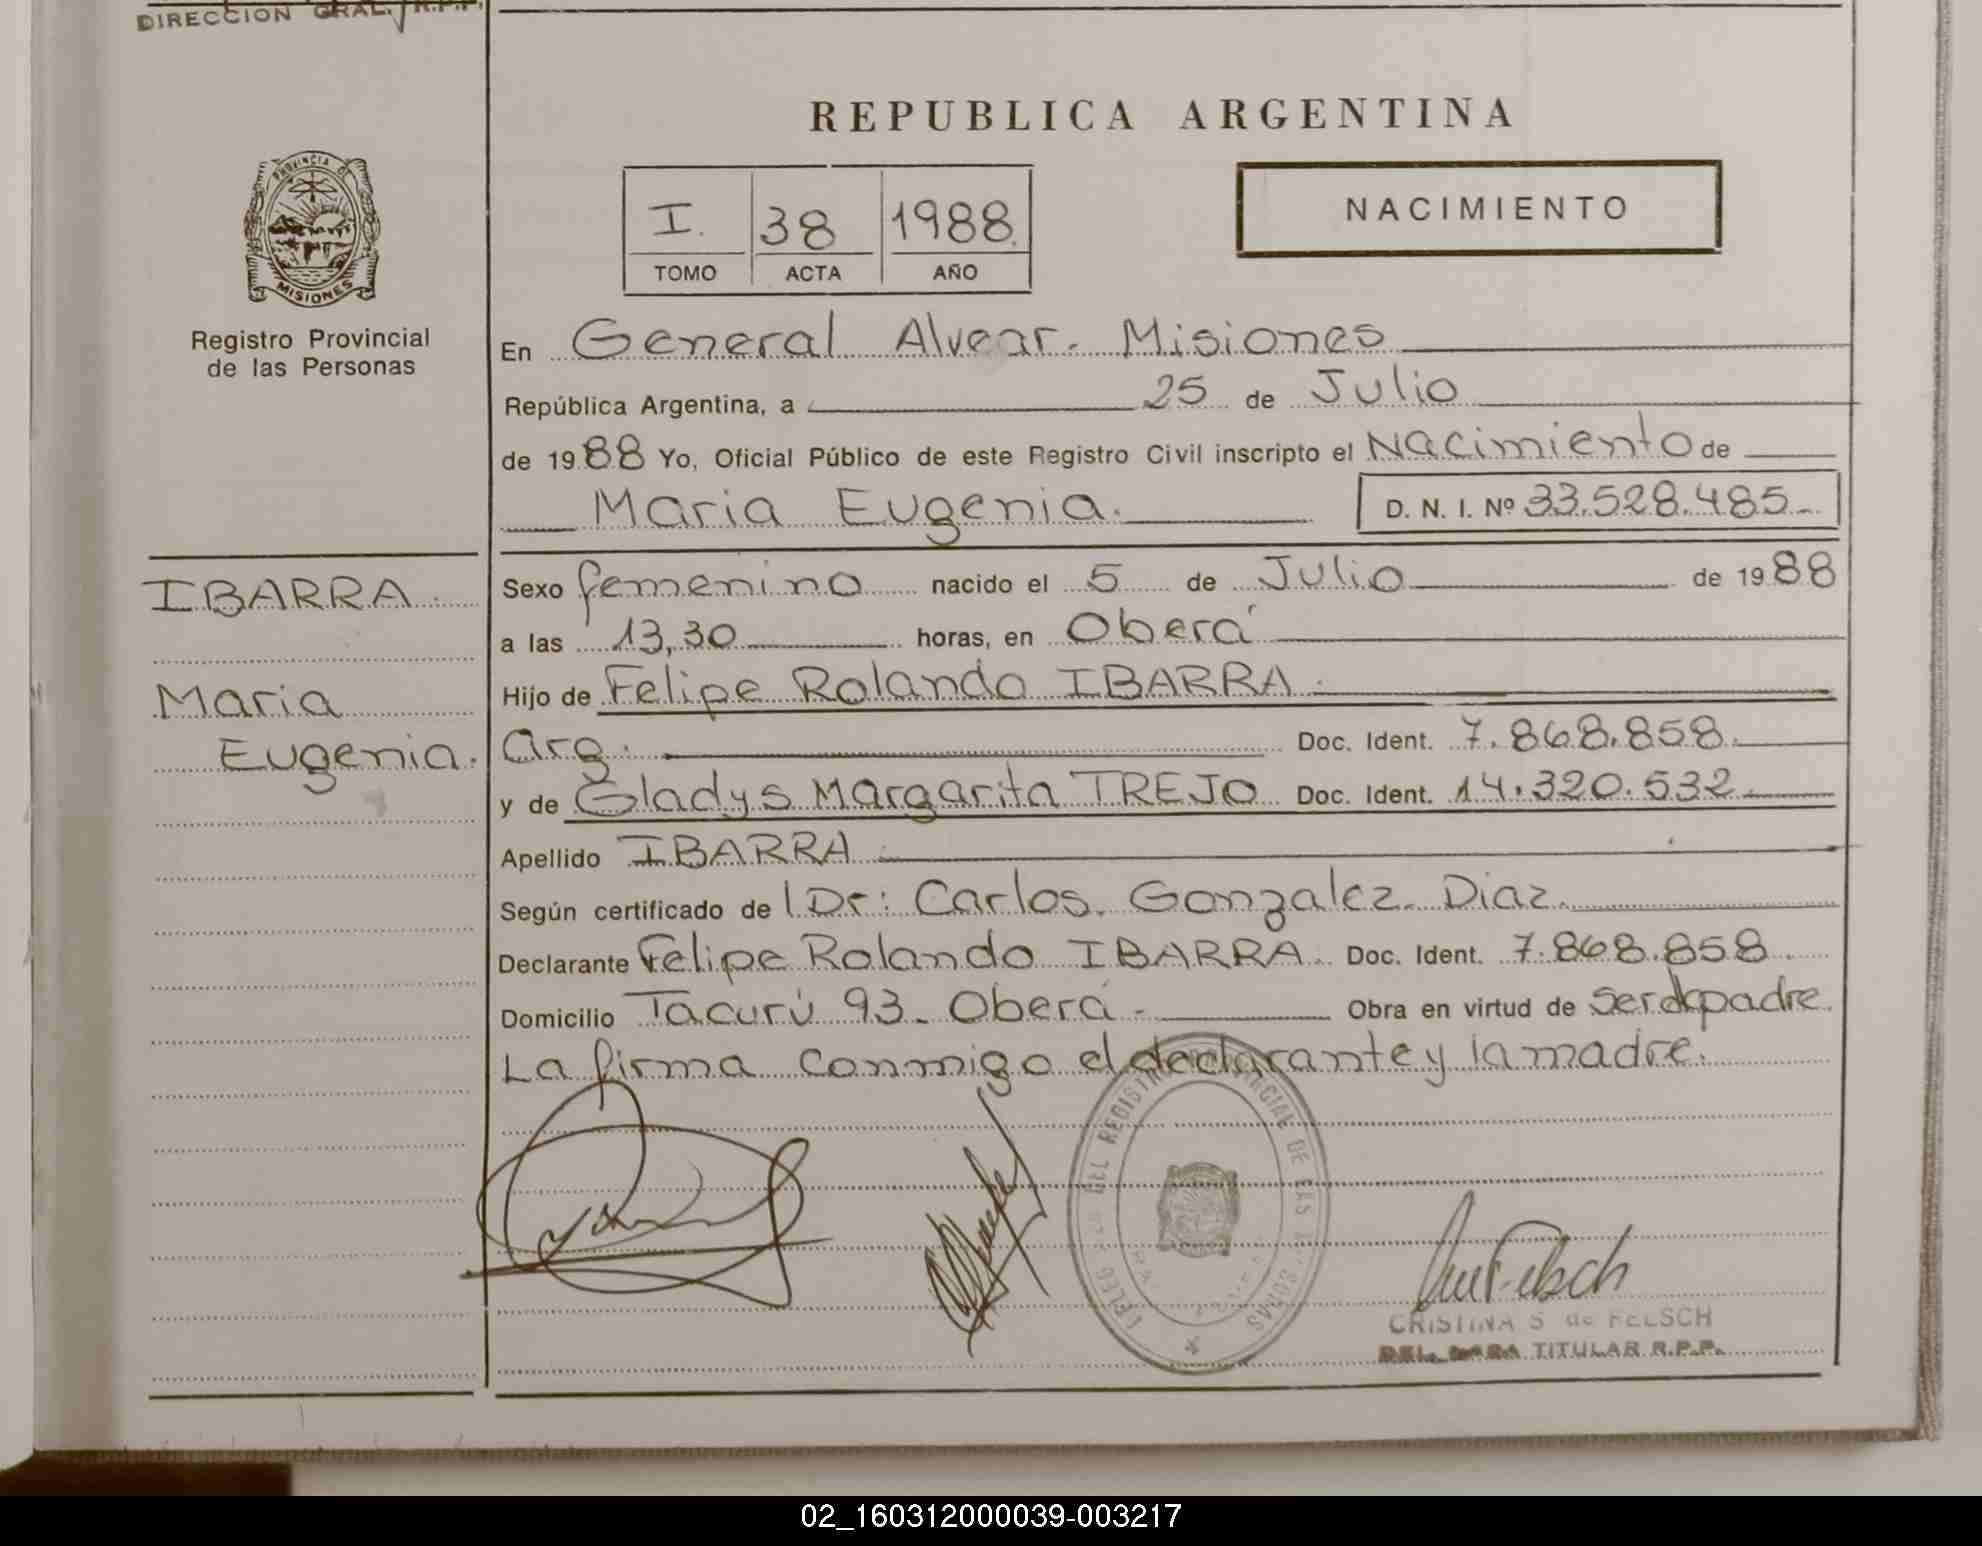 DIRECCION GRAL. R.P.P.
REPUBLICA ARGENTINA
PROVINCIA DE
MISIONES
Registro Provincial
de las Personas
I. 38 1988.
TOMO ACTA AÑO
NACIMIENTO
En General Alvear. Misiones
República Argentina, a 25 de Julio
de 1988 Yo, Oficial Público de este Registro Civil inscripto el Nacimiento de
Maria Eugenia. D. N. I. Nº 33.528.485.
IBARRA.
Maria
Eugenia.
Sexo femenino nacido el 5 de Julio de 1988
a las 13,30 horas, en Oberá
Hijo de Felipe Rolando IBARRA.
arg. Doc. Ident. 7.868.858.
y de Gladys Margarita TREJO Doc. Ident. 14.320.532
Apellido IBARRA
Según certificado de l Dr: Carlos. Gonzalez. Diaz.
Declarante Felipe Rolando IBARRA. Doc. Ident. 7.868.858.
Domicilio Tacurú 93. Oberá. Obra en virtud de ser el padre.
La firma conmigo el declarante y la madre.
DEL REGISTRO PROVINCIAL DE LAS PERSONAS
CRISTINA S de FELSCH
TITULAR R.P.P.
02_160312000039-003217